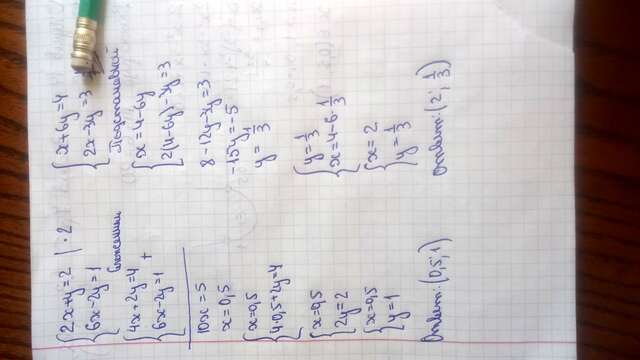 {2x+y=2 | ·2
{6x-2y=1
сложением
{4x+2y=4
{6x-2y=1 +
10x=5
x=0,5
{x=0,5
{4·0,5+2y=4
{x=0,5
{2y=2
{x=0,5
{y=1
Ответ: (0,5; 1)
{x+6y=4
{2x-3y=3
Подстановкой
{x=4-6y
{2(4-6y)-3y=3
8-12y-3y=3
-15y=-5
y=1/3
{y=1/3
{x=4-6·1/3
{x=2
{y=1/3
Ответ: (2; 1/3)